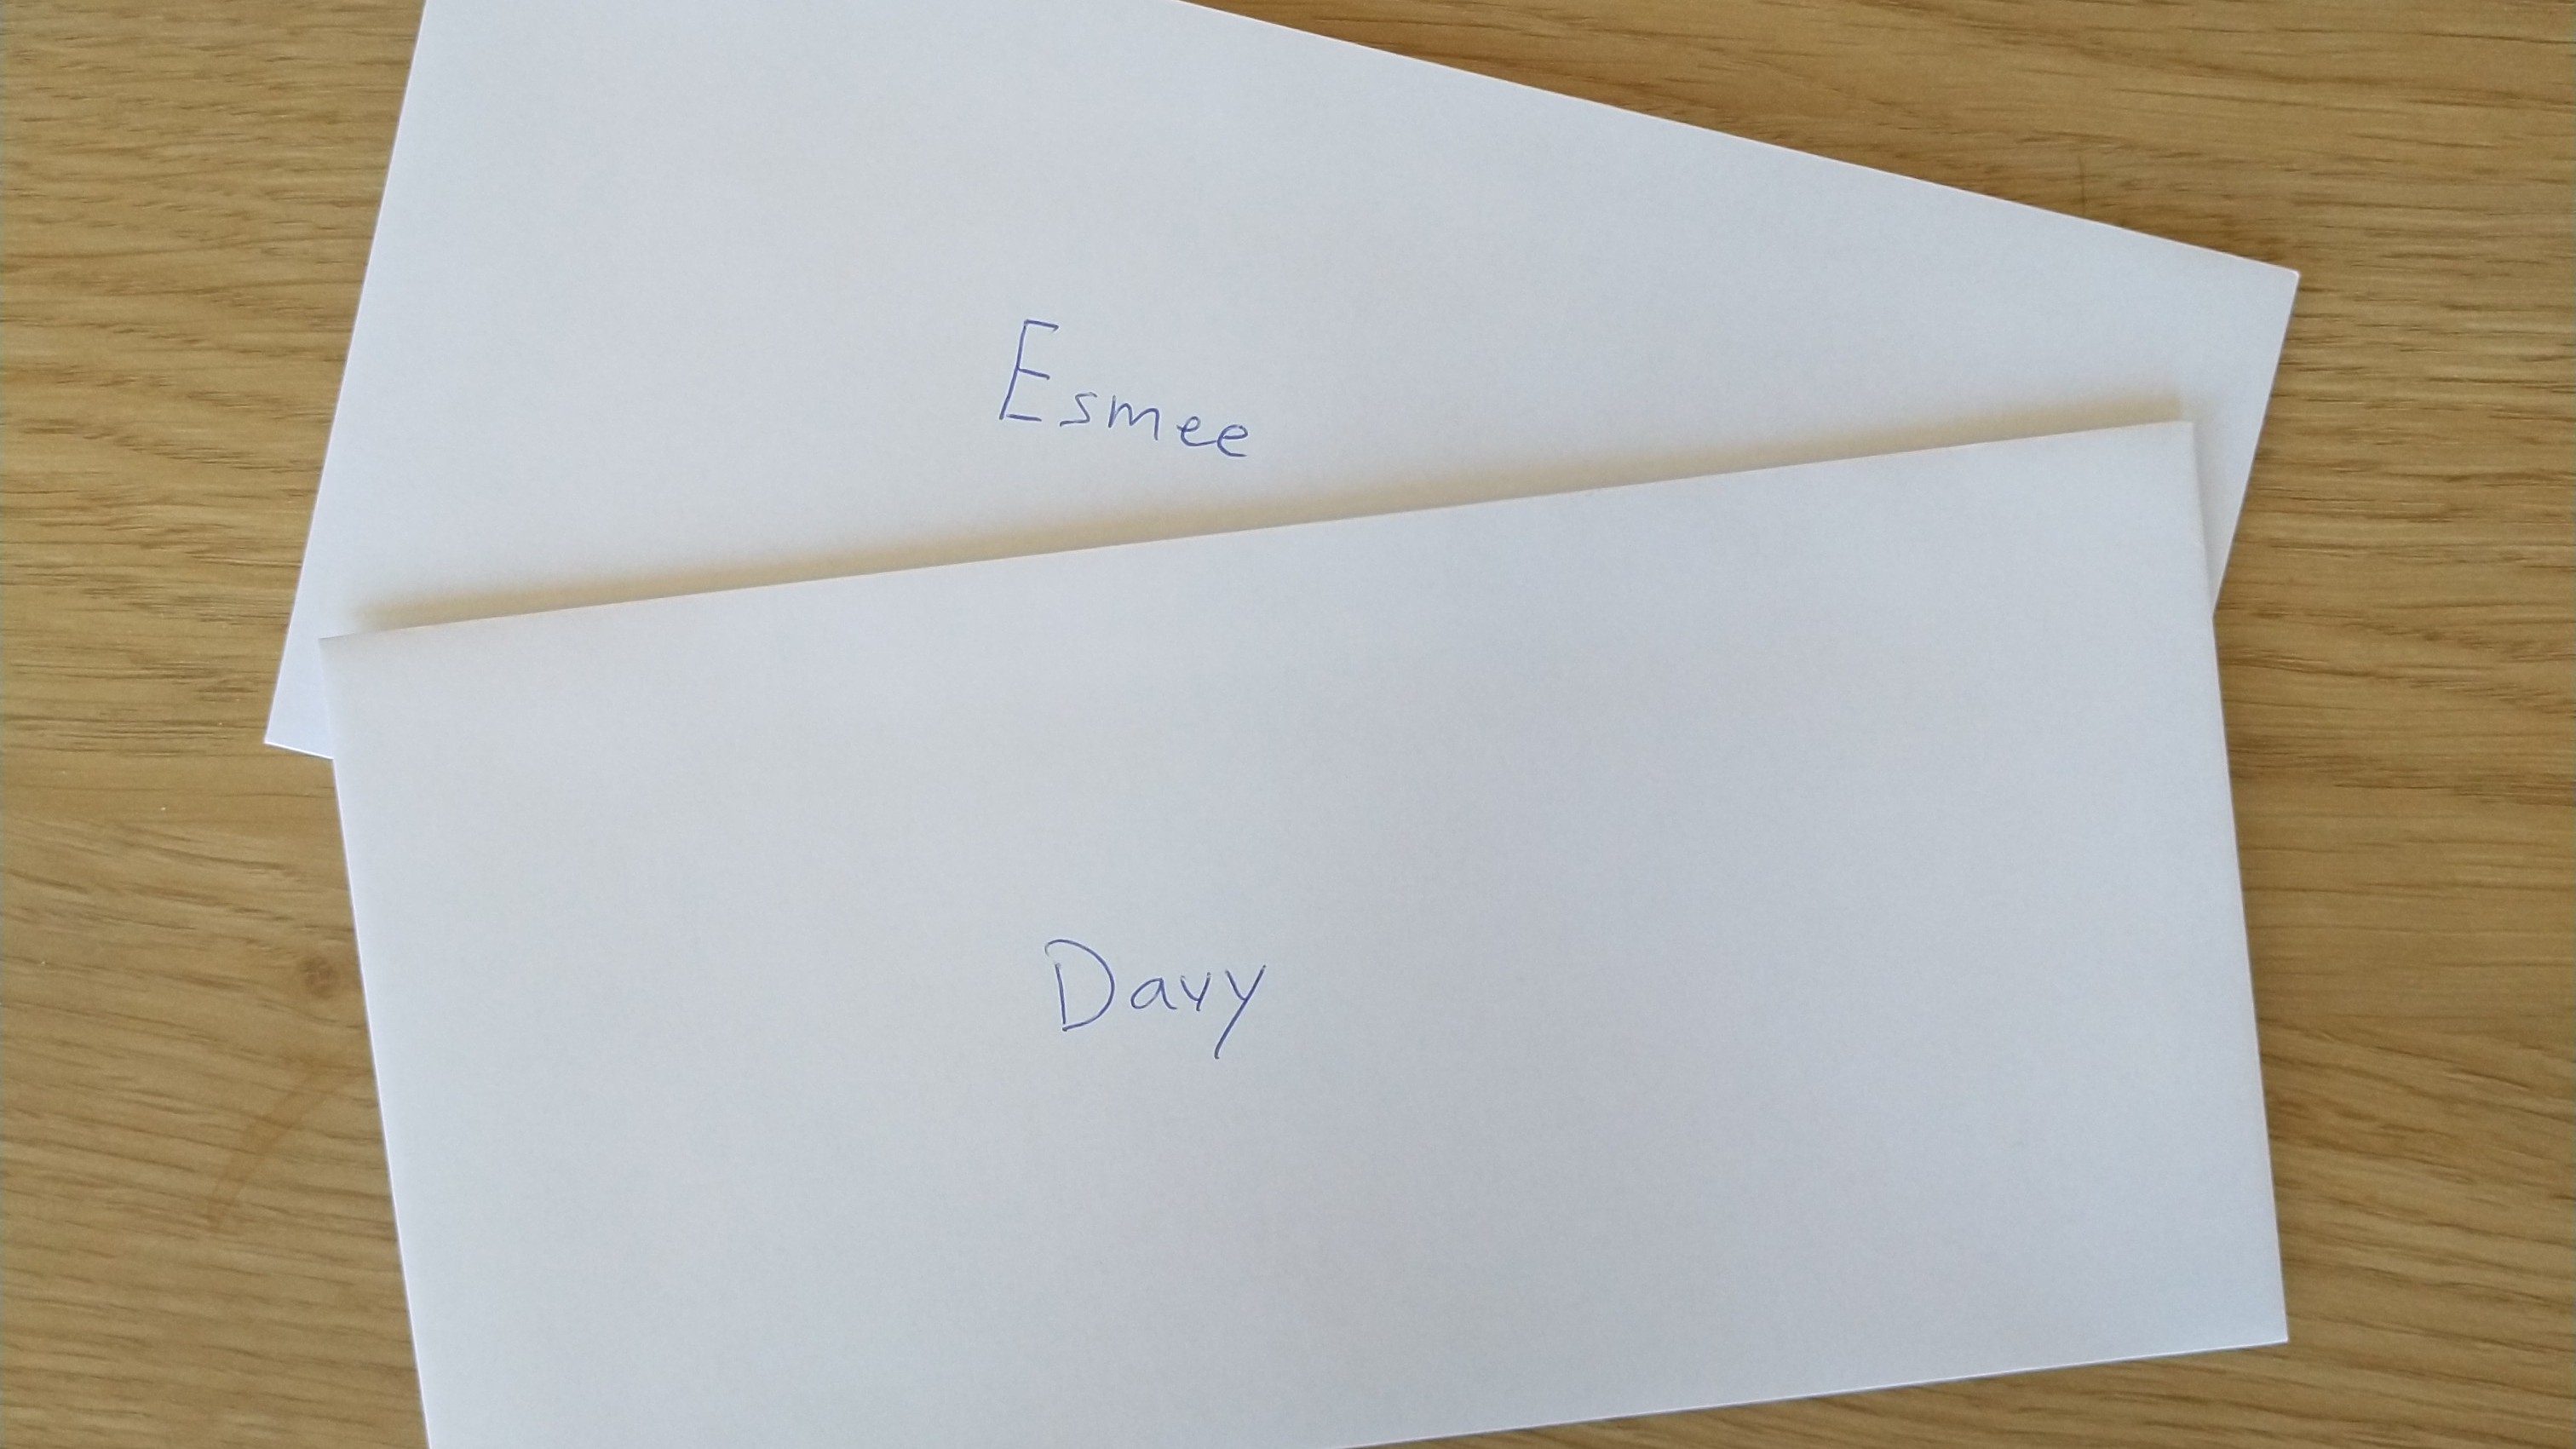 Esmee
Davy